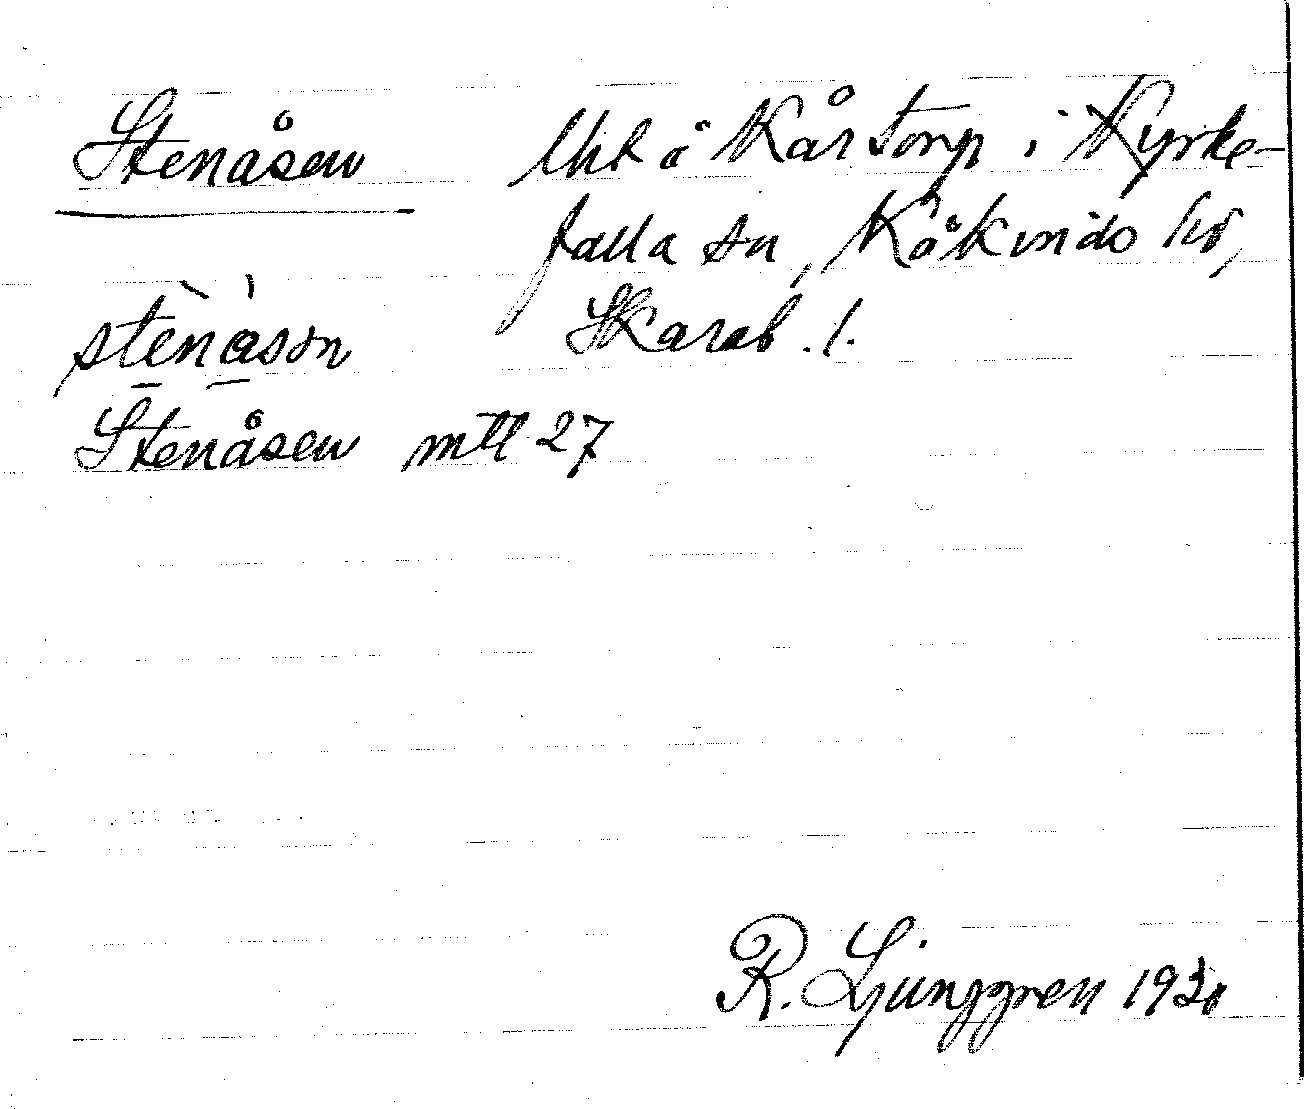 Stenåsen
Uht å Kårtorp i Kyrke-
falla sn, Kåkinds hd,
Skarab. l.
stènáson
Stenåsen mtl 27
R. Ljunggren 1930